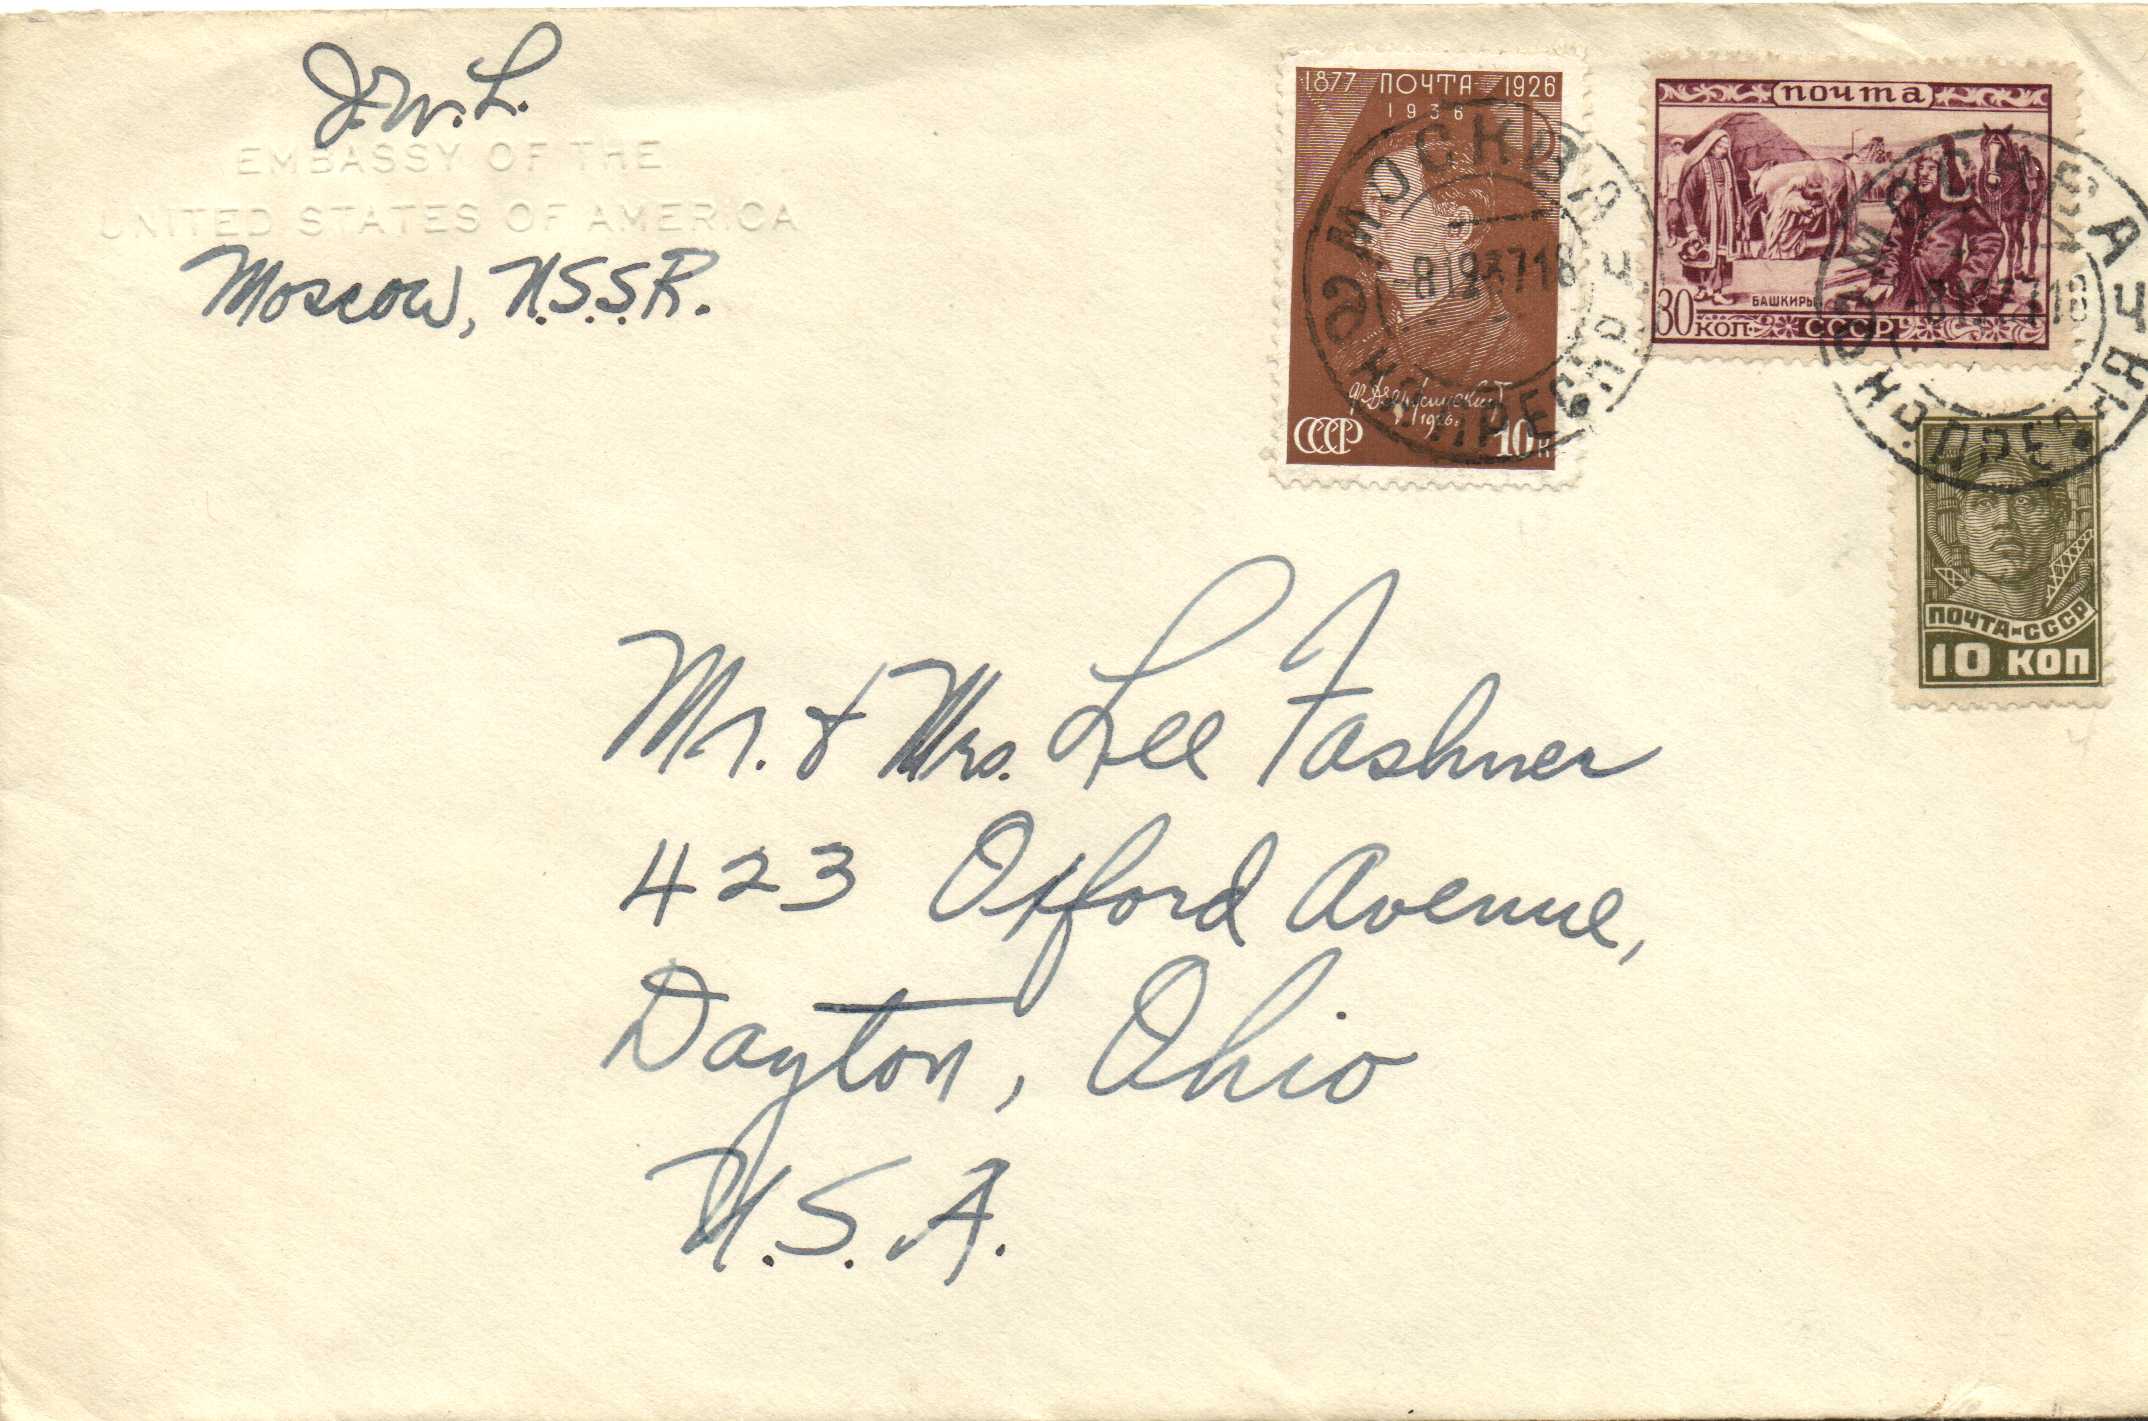 J.W.L.
EMBASSY OF THE
UNITED STATES OF AMERICA
Moscow, U.S.S.R.
1877 ПОЧТА 1926
1936
Ф Дзержинский
1926.
СССР 10 К
почта
БАШКИРЫ
30 КОП. СССР
МОСКВА
МОСКВА
ПОЧТА-СССР
10 КОП
Mr. & Mrs. Lee Fashner
423 Oxford Avenue,
Dayton, Ohio
U.S.A.